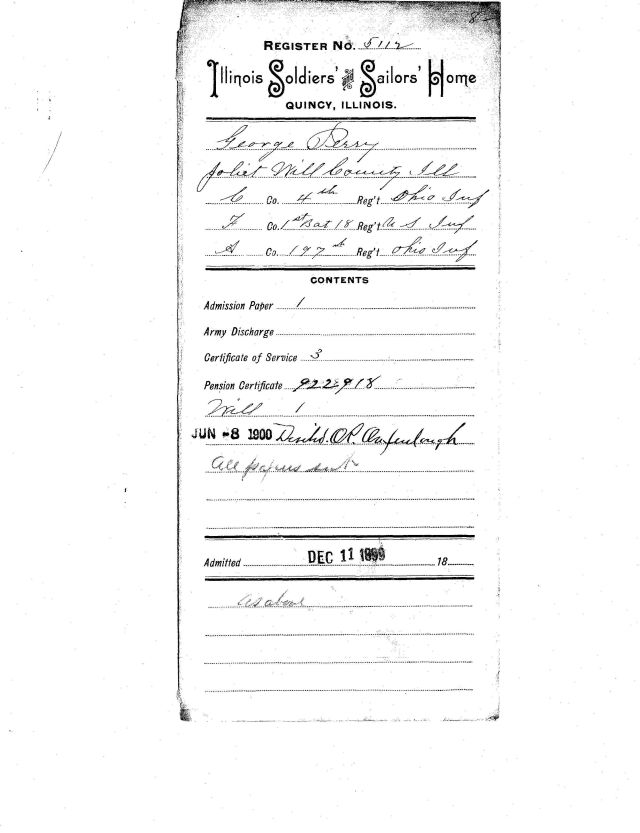 REGISTER NO. 5112
Illinois Soldiers' and Sailors' Home
QUINCY, ILLINOIS.
George Perry
Joliet Will County Ill
C Co. 4th Reg't Ohio Inf
F Co. 1st Bat 18 Reg't U S Inf
A Co. 197th Reg't Ohio Inf
CONTENTS
Admission Paper 1
Army Discharge
Certificate of Service 3
Pension Certificate 922918
Will 1
JUN -8 1900 O.R.
All papers sent
Admitted DEC 11 1899 18
As above